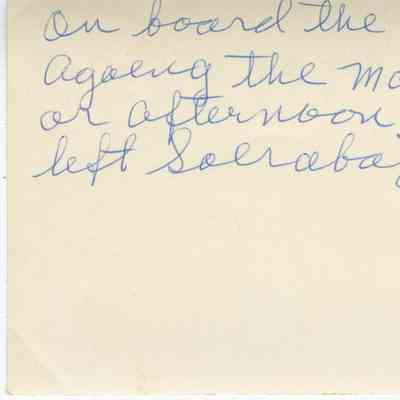 on board the
Agoeng the mo
or afternoon
left Soerabaj